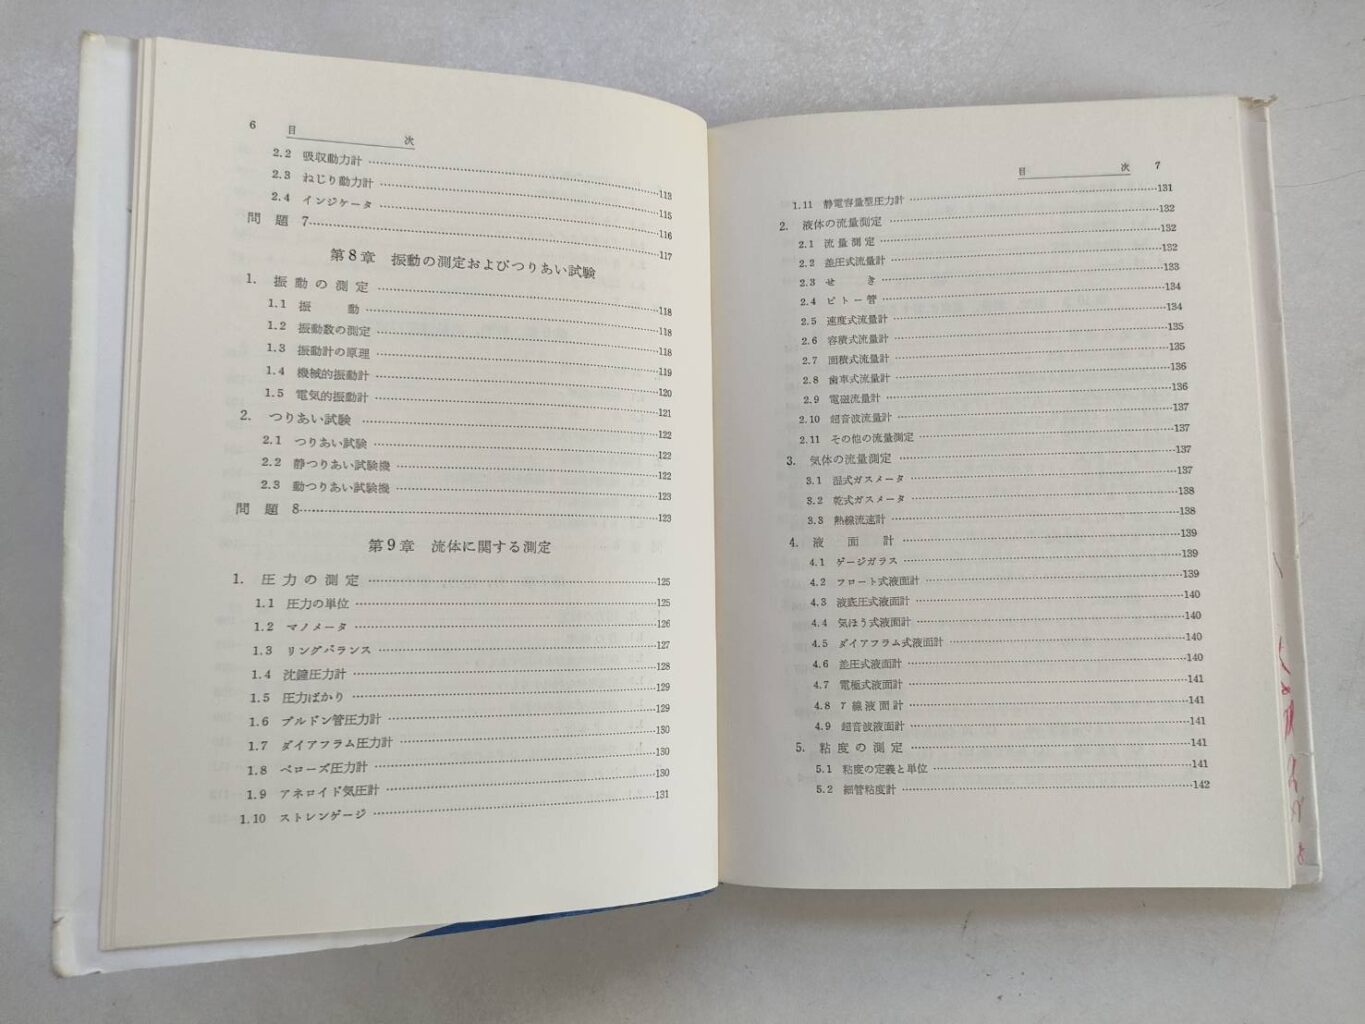 6 目 次
2.2 吸収動力計 113
2.3 ねじり動力計 115
2.4 インジケータ 116
問 題 7 117
第8章 振動の測定およびつりあい試験
1. 振動の測定 118
1.1 振 動 118
1.2 振動数の測定 118
1.3 振動計の原理 119
1.4 機械的振動計 120
1.5 電気的振動計 121
2. つりあい試験 122
2.1 つりあい試験 122
2.2 静つりあい試験機 122
2.3 動つりあい試験機 123
問 題 8 123
第9章 流体に関する測定
1. 圧力の測定 125
1.1 圧力の単位 125
1.2 マノメータ 126
1.3 リングバランス 127
1.4 沈鐘圧力計 128
1.5 圧力ばかり 129
1.6 ブルドン管圧力計 129
1.7 ダイアフラム圧力計 130
1.8 ベローズ圧力計 130
1.9 アネロイド気圧計 130
1.10 ストレンゲージ 131
目 次 7
1.11 静電容量型圧力計 131
2. 液体の流量測定 132
2.1 流量測定 132
2.2 差圧式流量計 132
2.3 せ き 133
2.4 ピトー管 134
2.5 速度式流量計 134
2.6 容積式流量計 135
2.7 面積式流量計 135
2.8 歯車式流量計 136
2.9 電磁流量計 136
2.10 超音波流量計 137
2.11 その他の流量測定 137
3. 気体の流量測定 137
3.1 湿式ガスメータ 137
3.2 乾式ガスメータ 138
3.3 熱線流速計 138
4. 液 面 計 139
4.1 ゲージガラス 139
4.2 フロート式液面計 139
4.3 液底圧式液面計 140
4.4 気ほう式液面計 140
4.5 ダイアフラム式液面計 140
4.6 差圧式液面計 140
4.7 電極式液面計 141
4.8 γ線液面計 141
4.9 超音波液面計 141
5. 粘度の測定 141
5.1 粘度の定義と単位 141
5.2 細管粘度計 142